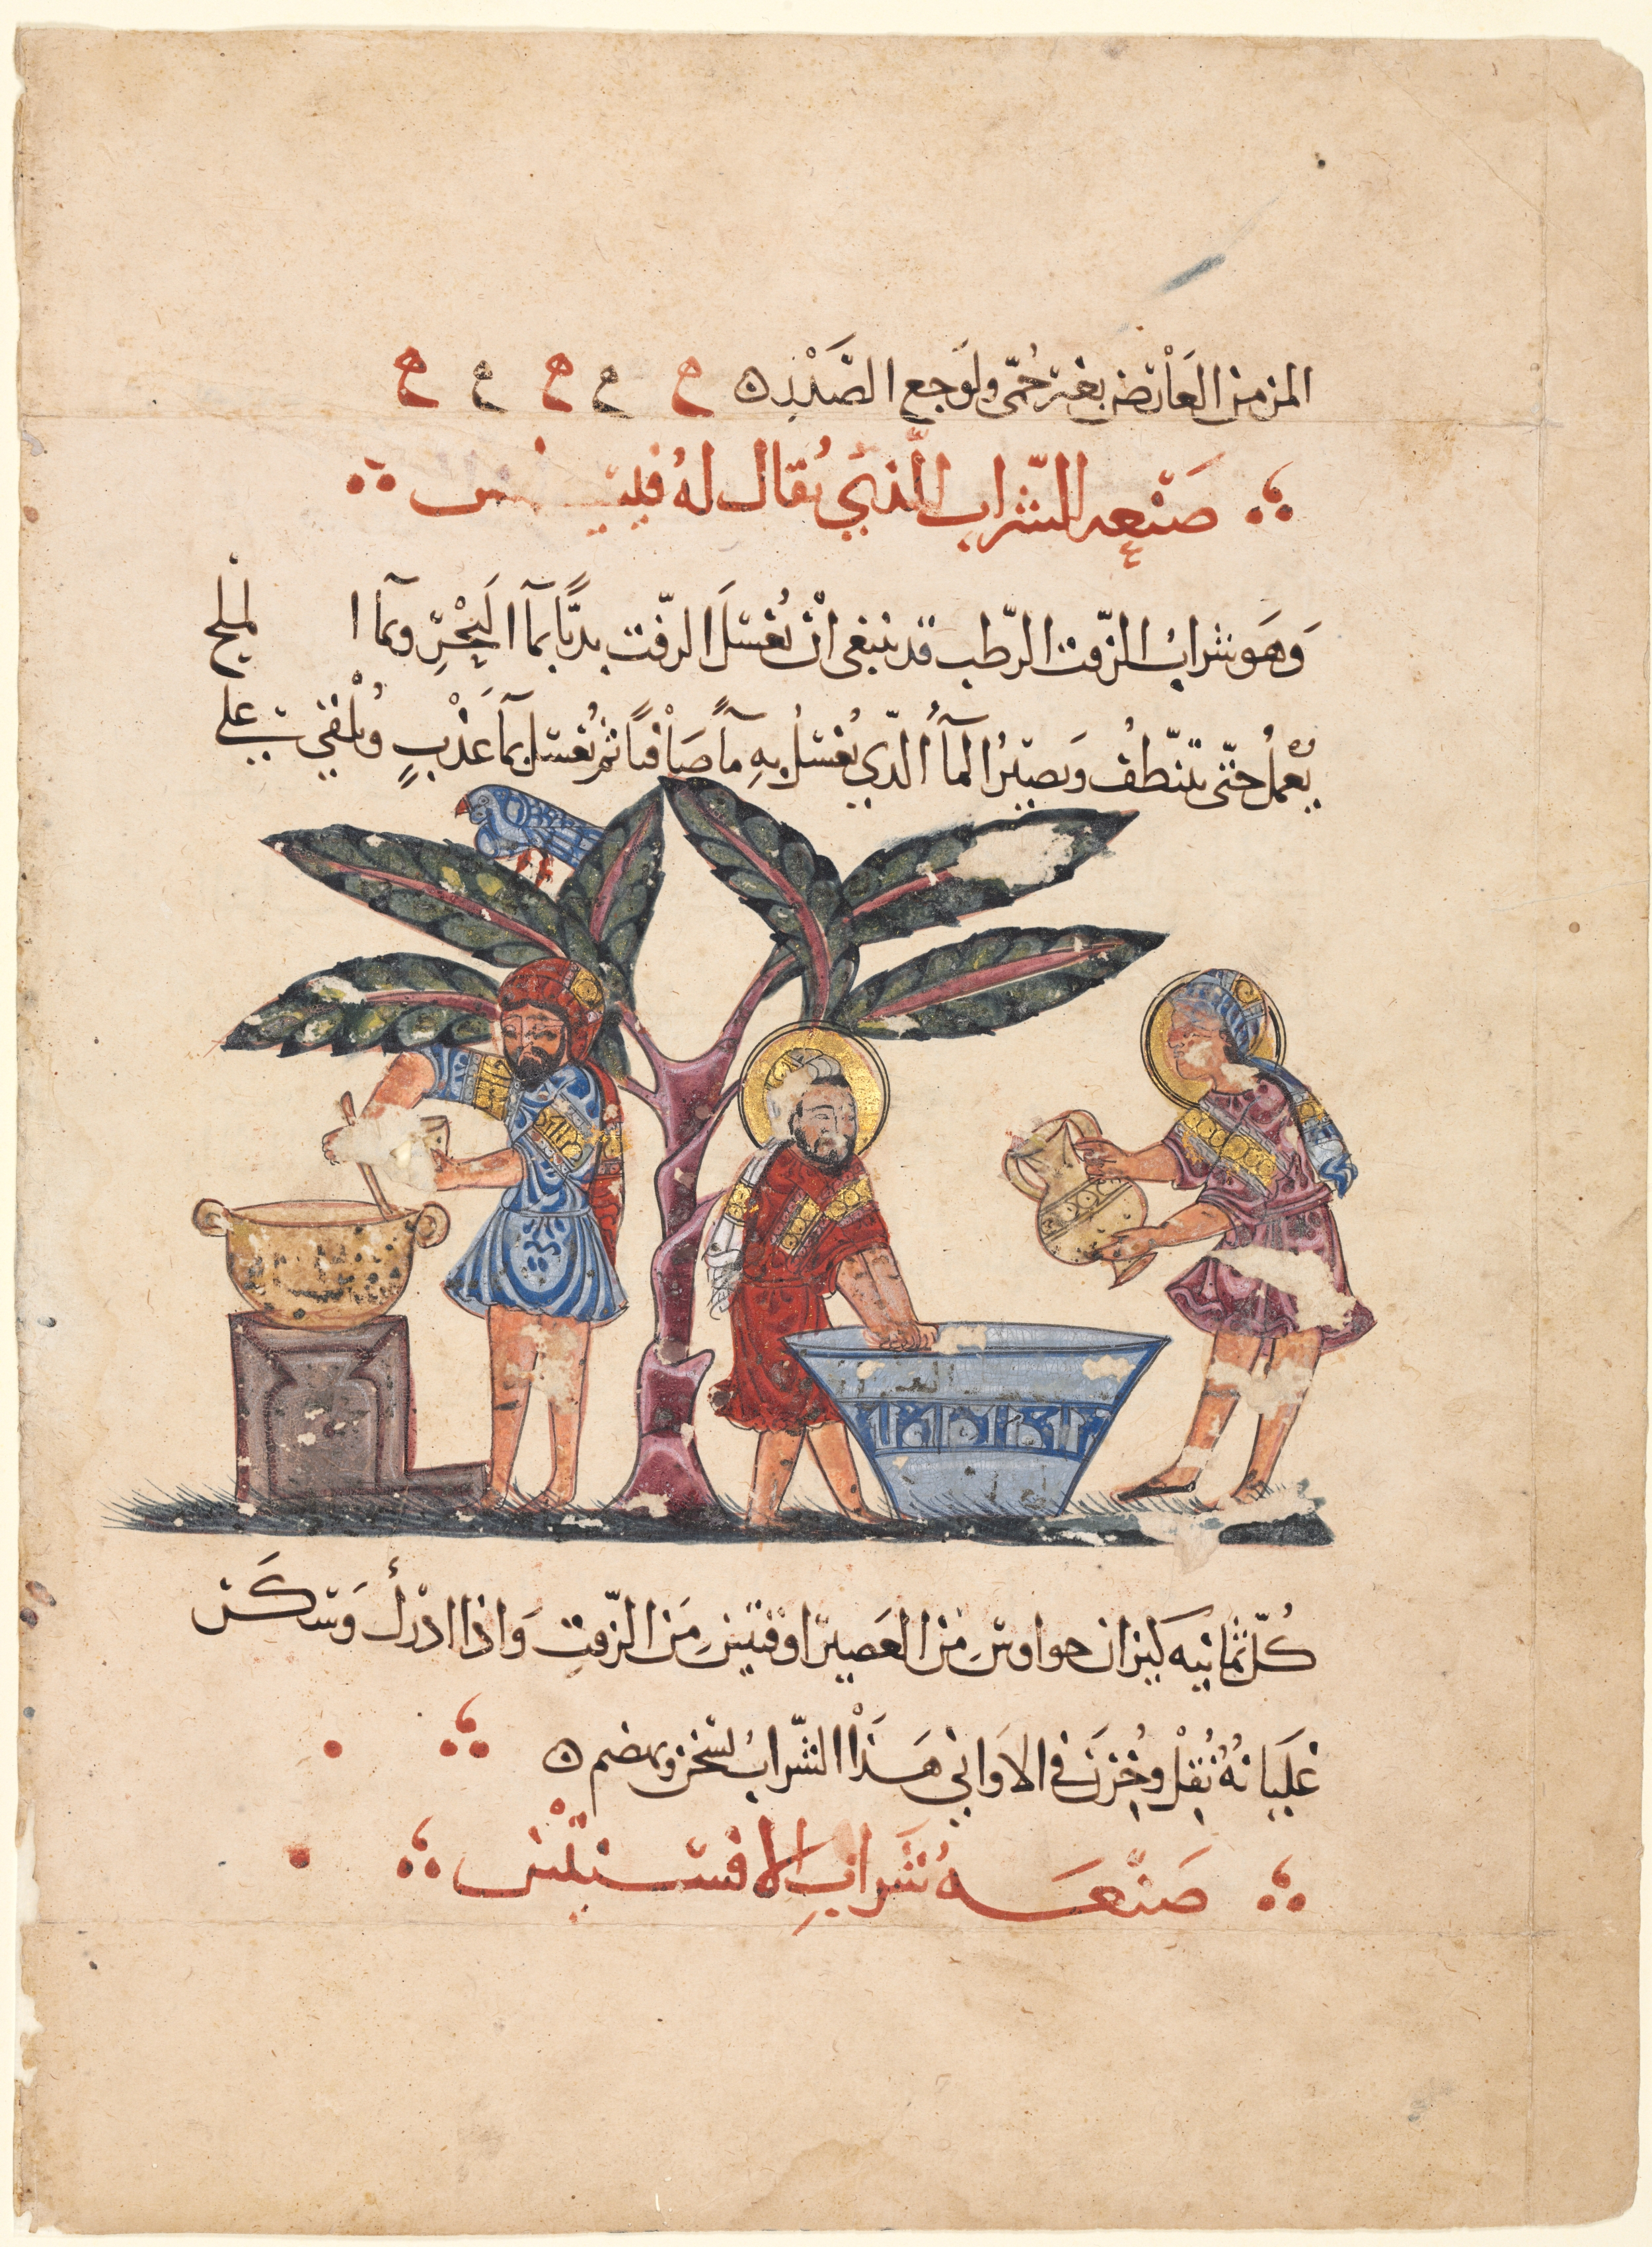 المزمن العارض بغير حُمّى ولوَجع الصَّدْر ه
صَنْعه الشّراب الّذي يُقال لهُ
وَهَو شرابُ الزّفت الرّطب قد ينبغى انْ يُغْسَلَ الزّفت بديًّا بمآ البَحْرِ وبمآ الملح
يُعْمَلُ حتّى يتنّظفُ وَيصيرُ المآُ الّذي يُغْسَلُ بِهِ مآً صَافياً ثم يُغسَل بمآ عَذْبٍ ويُلْقى على
كُلّ ثمانيه كيزان من العَصير اوقيتينِ مَن الزّفتِ وَاذا ادرَك وَسَكَن
غَلَيانهُ نُقِلْ وخُزِنَ في الاوَاني هَذَا الشّرابُ يسخن ويهضم ه
صَنْعَه شَرابِ الافسنتين